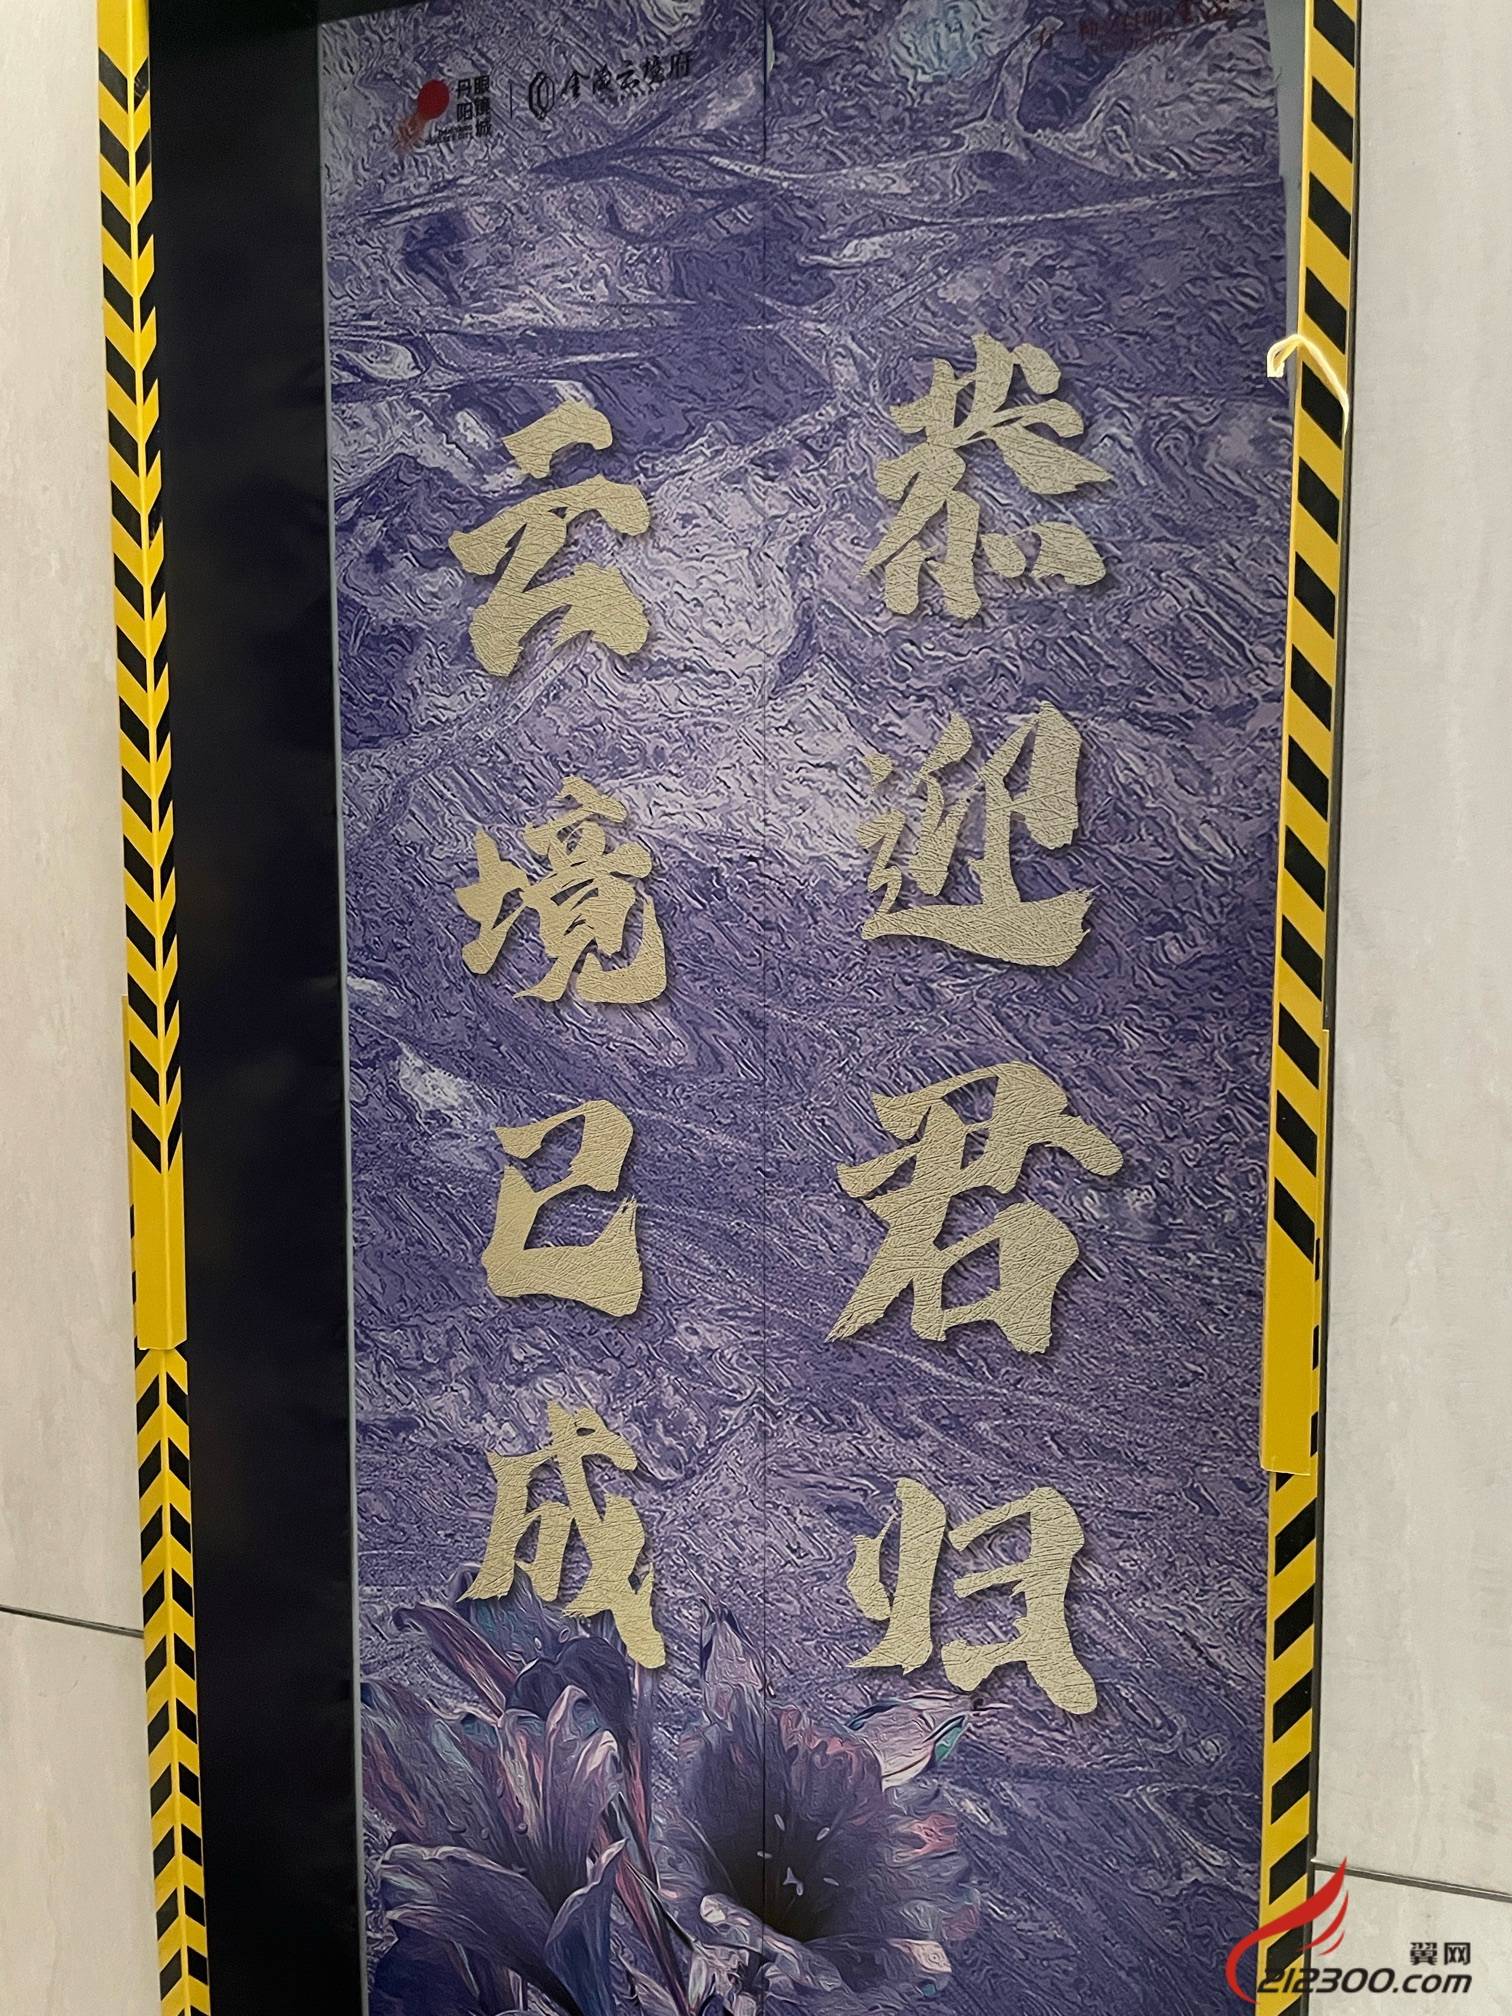 丹阳
眼镜城
金潋云境府
云境已成
恭迎君归
翼网
212300.com